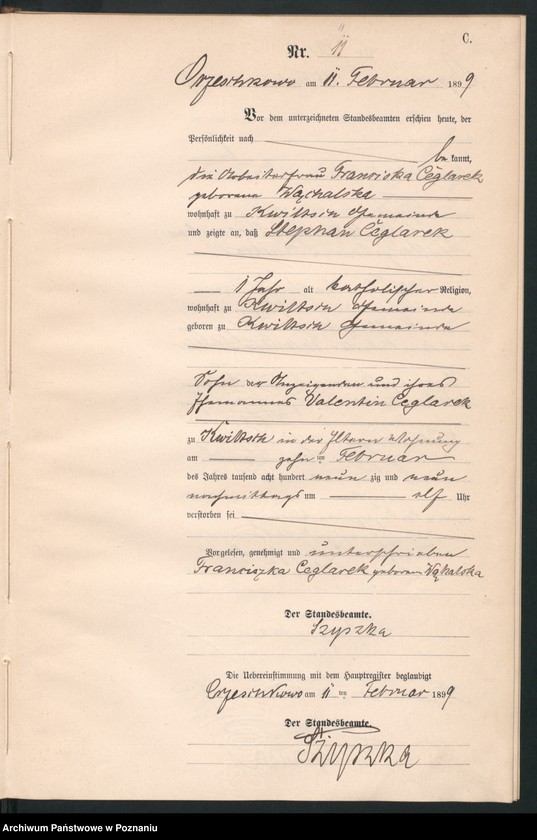 C.
Nr. 11
Orzeschkowo am 11. Februar 1899
Vor dem unterzeichneten Standesbeamten erschien heute, der
Persönlichkeit nach
be kannt,
die Arbeiterfrau Franciska Ceglarek
geborene Wąchalska
wohnhaft zu Kwiltsch Gemeinde
und zeigte an, daß Stephan Ceglarek
1 Jahr alt katholischer Religion,
wohnhaft zu Kwiltsch Gemeinde
geboren zu Kwiltsch Gemeinde
Sohn der Anzeigenden und ihres
Ehemannes Valentin Ceglarek
zu Kwiltsch in der Eltern Wohnung
am zehn ten Februar
des Jahres tausend acht hundert neun zig und neun
nachmittags um elf Uhr
verstorben sei
Vorgelesen, genehmigt und unterschrieben
Franciszka Ceglarek geborene Wąkalska
Der Standesbeamte.
Szyszka
Die Uebereinstimmung mit dem Hauptregister beglaubigt
Orzeschkowo am 11 ten Februar 1899
Der Standesbeamte.
Szyszka
Archiwum Państwowe w Poznaniu